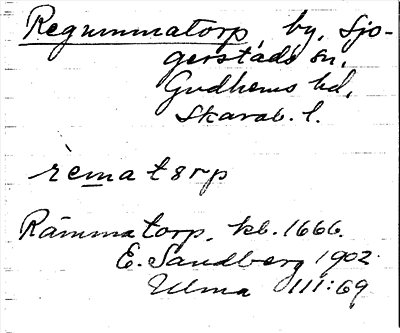 Regummatorp, by, Sjo-
gerstads sn,
Gudhems hd,
Skarab. l.
rematorp
Rämmatorp. kb. 1666.
E. Sandberg 1902.
Ulma 111:69